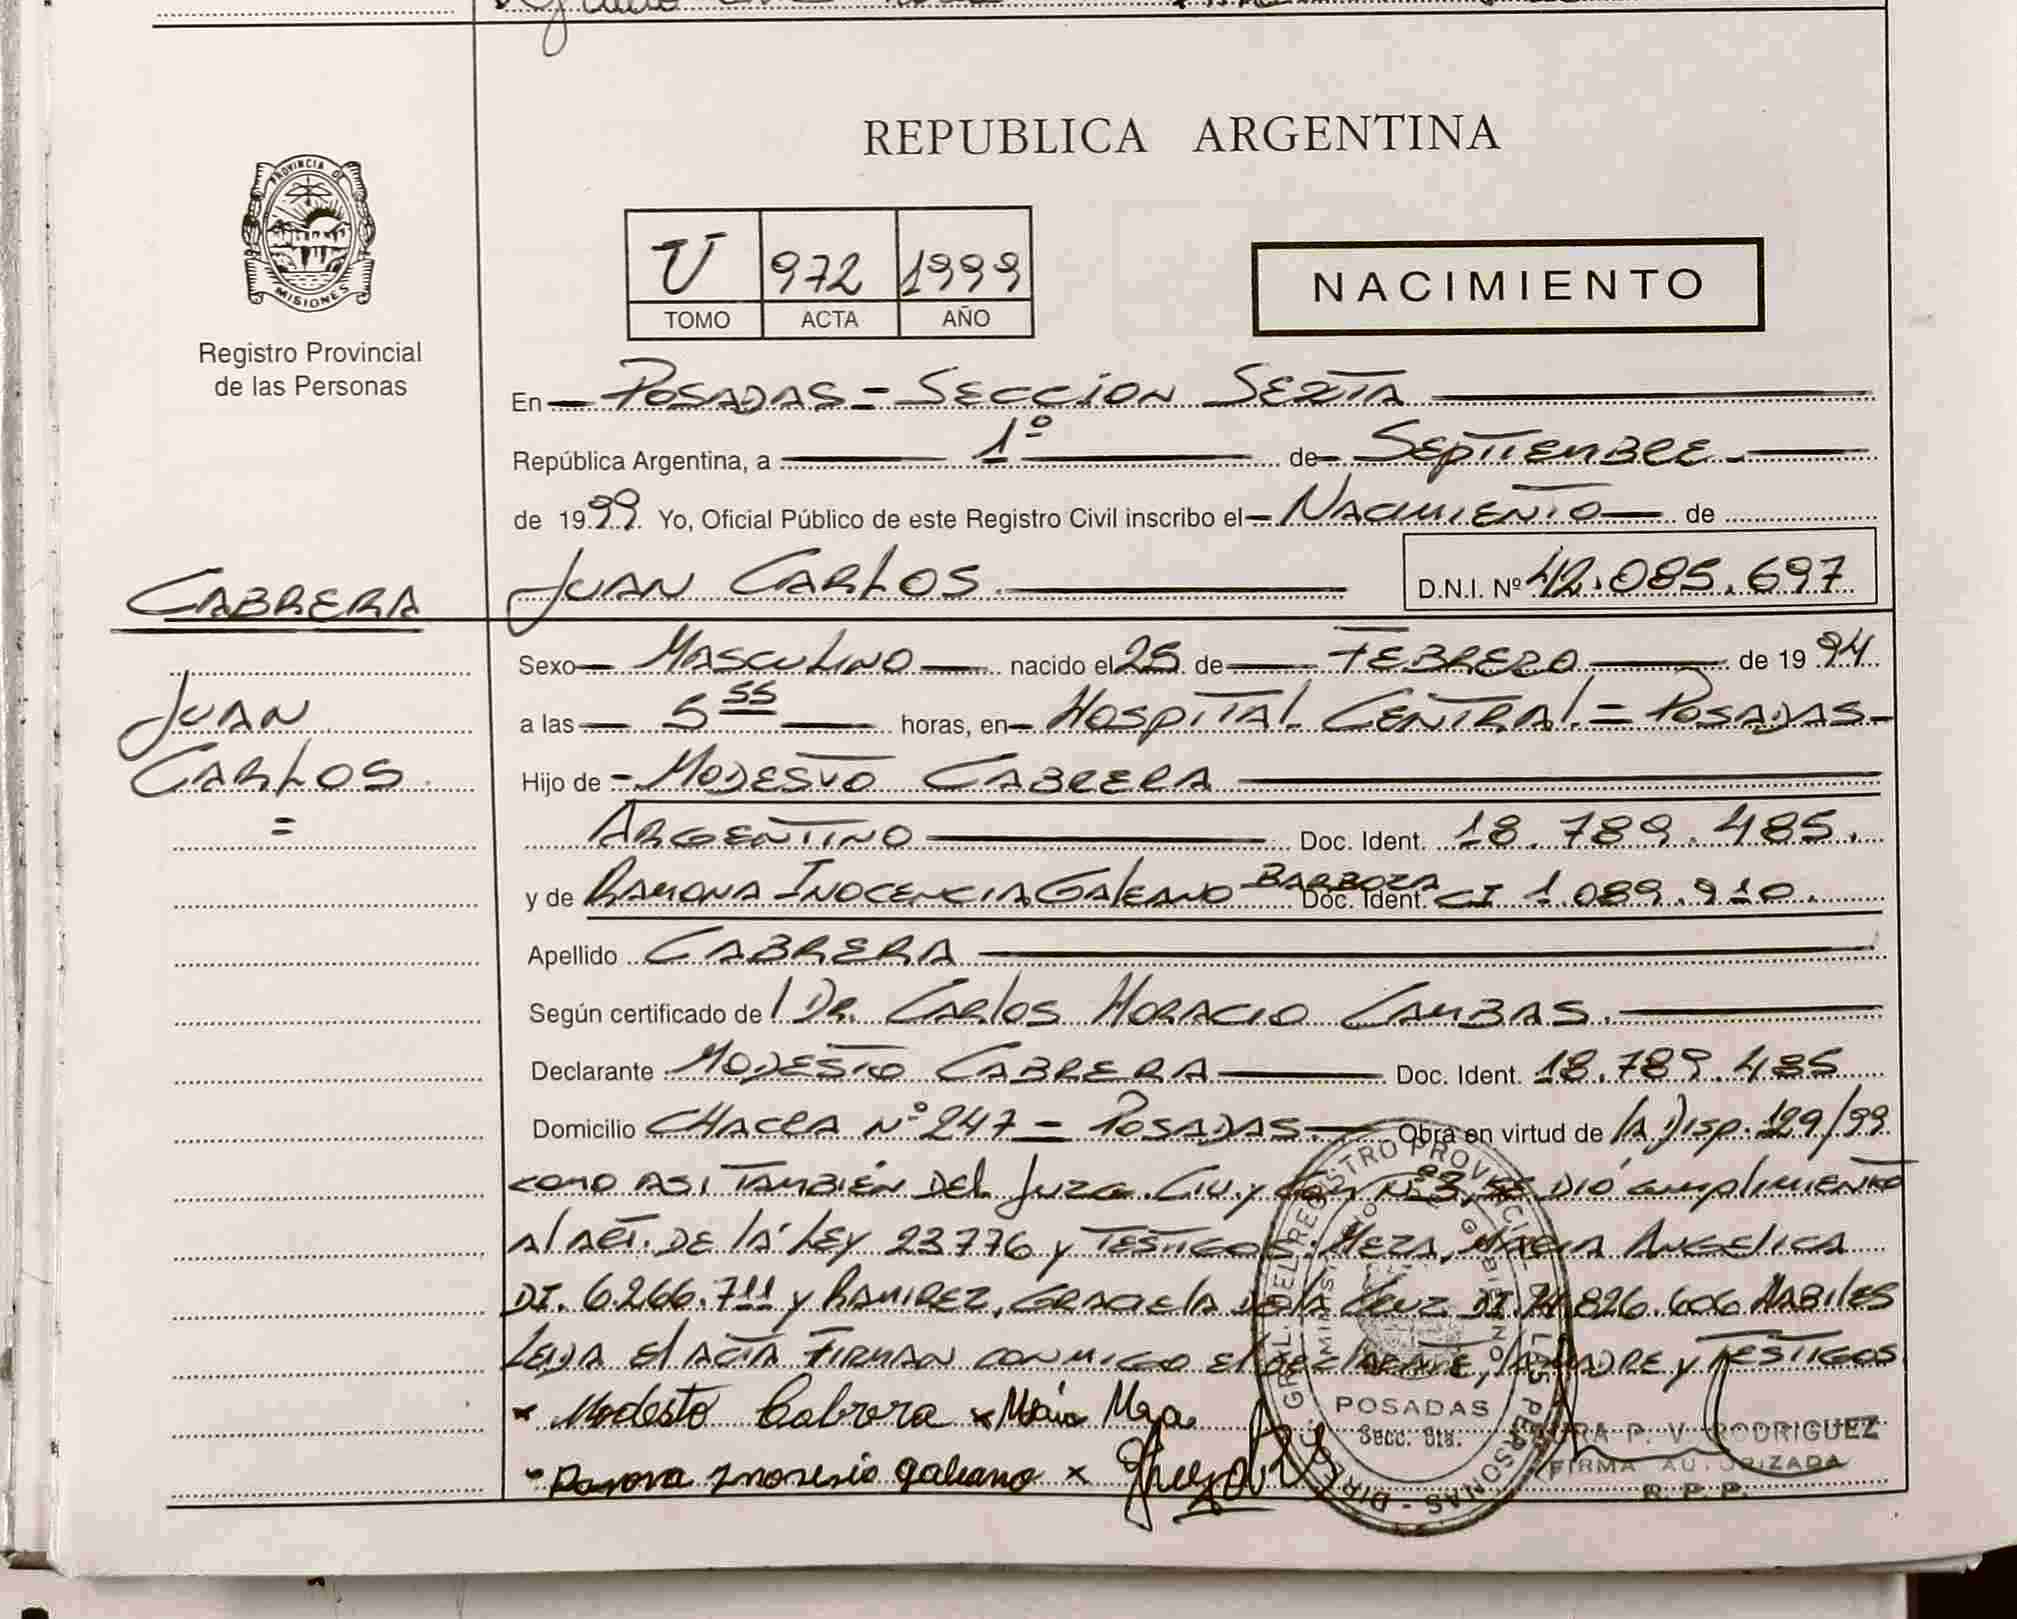 REPUBLICA ARGENTINA
PROVINCIA DE
MISIONES
Registro Provincial
de las Personas
U 972 1999
TOMO ACTA AÑO
NACIMIENTO
En POSADAS = SECCION SEXTA
República Argentina, a 1º de SEPTIEMBRE
de 1999. Yo, Oficial Público de este Registro Civil inscribo el NACIMIENTO de
CABRERA
JUAN CARLOS D.N.I. Nº 42.085.697
Sexo MASCULINO nacido el 25 de FEBRERO de 1994
JUAN
a las 5 55 horas, en HOSPITAL CENTRAL = POSADAS
CARLOS
Hijo de MODESTO CABRERA
=
ARGENTINO Doc. Ident. 18.789.485.
y de RAMONA INOCENCIA GALEANO BARBOZA Doc. Ident. CI 1.089.910.
Apellido CABRERA
Según certificado de l DR. CARLOS HORACIO CAMBAS.
Declarante MODESTO CABRERA Doc. Ident. 18.789.485
Domicilio CHACRA Nº 247 = POSADAS. Obra en virtud de la DISP. 129/99
COMO ASI TAMBIÉN DEL JUZG. CIV. y COM. Nº 3, SE DIÓ CUMPLIMIENTO
Al ART. DE lA LEY 23776 y TESTIGOS: MEZA, MARIA ANGELICA
DI. 6.266.711 y RAMIREZ, GRACIElA DE lA CRUZ DI. 826.606 HABILES
LEIDA El ACTA FIRMAN CONMIGO El DECLARANTE, lA MADRE y TESTIGOS
x Modesto Cabrera x María Meza
Ramona Galeano x
DIRE GRAL. DEL REGISTRO PROVINCIAL LAS PERSONAS
POSADAS
Secc. 6ta.
P. V. RODRIGUEZ
FIRMA AUTORIZADA
R. P. P.